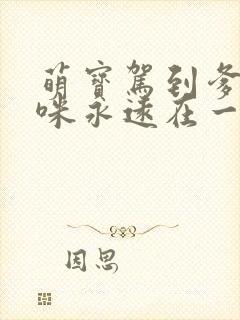 萌寶駕到爹
咪永遠在一
因思